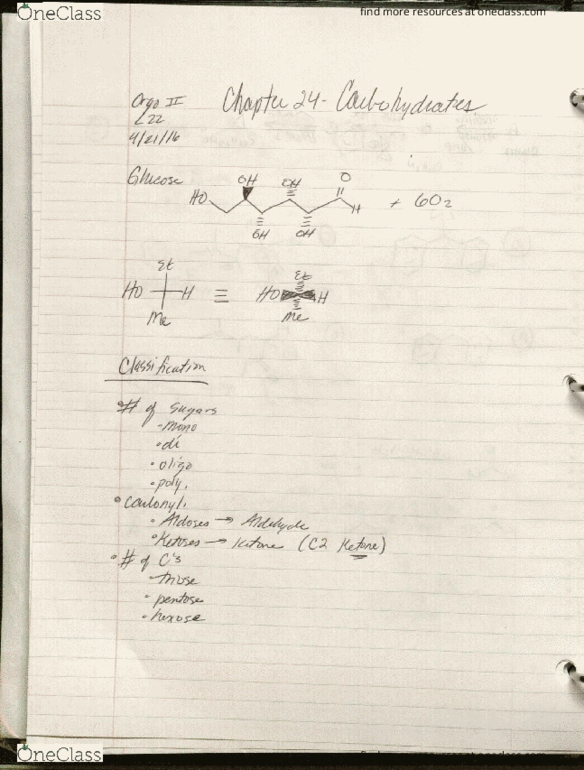 OneClass
find more resources at oneclass.com
Orgo II
L22
4/21/16
Chapter 24 - Carbohydrates
Glucose
HO OH OH OH OH O H + 6O2
Et
HO H ≡ HO H
Et
Me Me
Classification
# of sugars
• mono
• di
• oligo
• poly.
• Carbonyl.
• Aldoses → Aldehyde
• Ketoses → Ketone (C2 Ketone)
• # of C's
• pentose
• hexose
OneClass